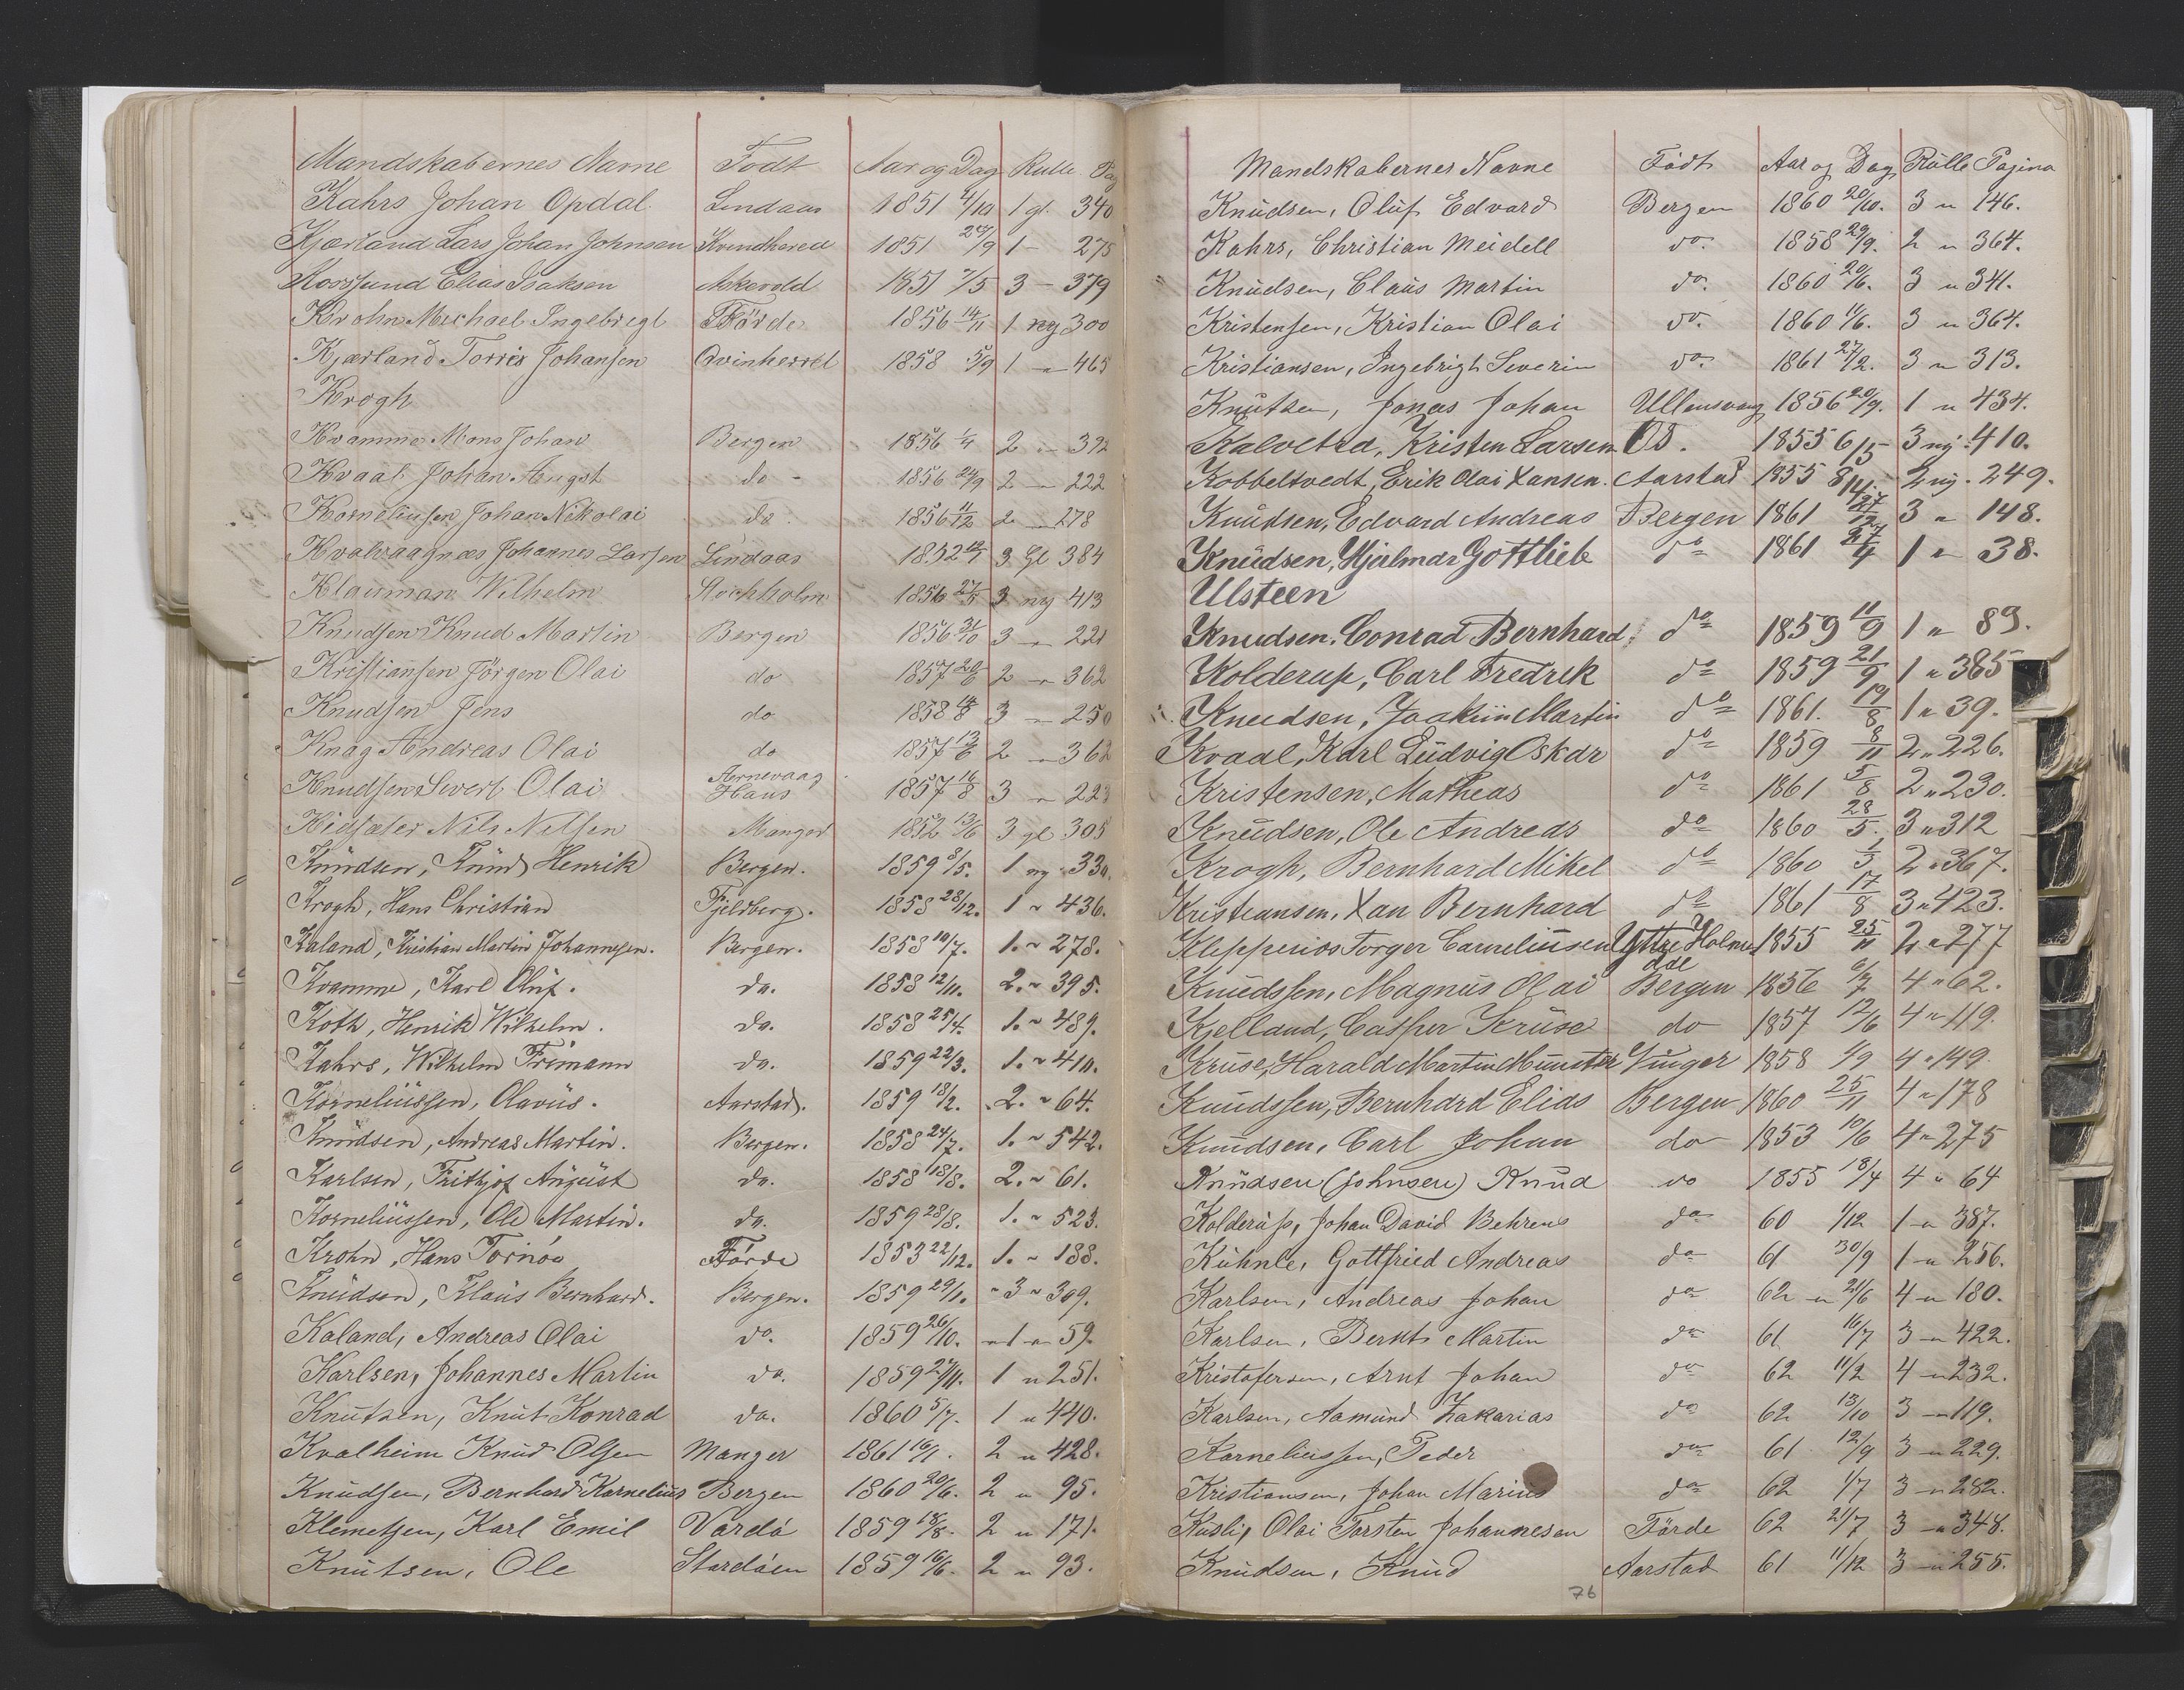 Mandskabernes Navne Født Aar og Dag Rulle Pag
Kahrs Johan Opdal Lindaas 1851 4/10 1 gl. 340
Kjærland Lars Johan Johnsen Kvindhered 1851 27/9 1 - 275
Elias Isaksen Askevold 1851 7/5 3 - 379
Krohn Michael Ingebrigt Förde 1856 14/11 1 ny 300
Kjærland Torris Johansen Qvinherred 1858 5/9 1 - 465
Krogh
Kvamme Mons Johan Bergen 1856 1/4 2 - 392
Kvaal Johan August do - 1856 24/9 2 - 222
Korneliusen Johan Nikolai do. 1856 11/12 2 - 278
Kvalvaagnæs Johannes Larsen Lindaas 1852 3 Gl 384
Klauman Wilhelm Stockholm 1856 27/5 3 ny 413
Knudsen Knud Martin Bergen 1856 31/10 3 - 221
Kristiansen Jörgen Olai do 1857 20/6 2 - 362
Knudsen Jens do 1858 3 - 250
Knag Andreas Olai do 1857 13/6 2 - 362
Knudsen Sivert Olai Haus 1857 16/8 3 - 223
Nils Nilsen Manger 1852 13/6 3 gl 305
Knudsen, Knud Henrik Bergen. 1859 8/5. 1 ny 330.
Krogh, Hans Christian Fjeldberg. 1858 28/12. 1 " 436.
Kaland, Kristian Martin Johannesen. Bergen. 1858 10/7. 1. " 278.
Kvamme, Karl Oluf. do. 1858 12/11. 2. " 395.
Koth, Henrik Wilhelm. do. 1858 25/4. 1. " 489.
Kahrs, Wilhelm Frimann do. 1859 22/3. 1. " 410.
Korneliussen, Olavus. Aarstad. 1859 18/2. 2. " 64.
Knudsen, Andreas Martin. Bergen. 1858 24/7. 1. " 542.
Karlsen, Frithjof August do. 1858 18/8. 2. " 61.
Korneliussen, Ole Martin. do. 1859 28/8. 1. " 523.
Krohn, Hans Tornöe Förde 1853 22/12. 1. " 188.
Knudsen, Klaus Bernhard. Bergen. 1859 29/1. " 3 " 309.
Kaland, Andreas Olai do. 1859 26/10. " 1 " 59.
Karlsen, Johannes Martin do. 1859 27/11. 1 " 251.
Knutsen, Knut Konrad do. 1860 5/7. 1 " 440.
Kvalheim Knud Olsen Manger 1861 16/1. 2 " 428.
Knudsen, Bernhard Kornelius Bergen 1860 20/6. 2 " 95.
Klemetsen, Karl Emil Vardö 1859 18/8. 2 " 171.
Knutsen, Ole Stordöen 1859 16/6. 2 " 93.
Mandskabernes Navne Födt Aar og Dag Rulle Pagina
Knudsen, Oluf Edvard Bergen 1860 20/10. 3 " 146.
Kahrs, Christian Meidell do. 1858 29/9. 2 " 364.
Knudsen, Claus Martin do. 1860 20/6. 3 " 341.
Kristensen, Kristian Olai do. 1860 11/6. 3 " 364.
Kristiansen, Ingebrigt Severin do. 1861 27/2. 3 " 313.
Knutsen, Jonas Johan Ullensvang 1856 20/9. 1 " 434.
Kalvetræ, Kristen Larsen Os. 1855 6/5 3 ny. 410.
Kobbeltvedt, Erik Olai Hansen. Aarstad 1855 8/4. 2 ny. 249.
Knudsen, Edvard Andreas Bergen 1861 27/12 3 " 148.
Knudsen, Hjalmar Gottlieb do 1861 27/4 1 " 38.
Ulsteen
Knudsen, Conrad Bernhard, do 1859 11/9 1 " 89.
Kolderup, Carl Fredrik do 1859 21/9 1 " 385
Knudsen, Joakim Martin do 1861. 19/8 1 " 39.
Kvaal, Karl Ludvig Oskar do 1859 8/11 2 " 226.
Kristensen, Matheas do 1861 5/8 2 " 230.
Knudsen, Ole Andreas do 1860 28/5. 3 " 312
Krogh, Bernhard Mikel do 1860 1/5 2 " 367.
Kristiansen, Jan Bernhard do 1861 17/8 3 " 423.
Kleppenos Torger Carneliusen Yttre Holme 1855 25/11 2 " 277
dal
Knudssen, Magnus Olai Bergen 1856 6/7 4 " 62.
Kjelland, Casper Kruse do 1857 12/6 4 " 119.
Kruse, Harald Martin Munster Vinger 1858 1/9 4 " 149.
Knudssen, Bernhard Elias Bergen 1860 25/11 4 " 178
Knudsen, Carl Johan do 1853 10/6 4 " 275
Knudsen (Johnsen) Knud do 1855 18/4 4 " 64
Kolderup, Johan David Behrens do 60 1/12 1 " 387.
Kühnle, Gottfried Andreas do 61 30/9 1 " 256.
Karlsen, Andreas Johan do 62 " 21/6 4 " 180.
Karlsen, Bernt Martin do 61 16/7 3 " 422.
Kristofersen, Arnt Johan do 62 11/2 4 " 232.
Karlsen, Aamund Zakarias do 62 13/10 3 " 119.
Korneliussen, Peder do 61 12/9 3 " 229.
Kristiansen, Johan Marius do 62 1/7 3 " 282.
Kusli, Olai Torsten Johannesen Förde 62 21/7 3 " 348.
Knudsen, Knud Aarstad 61 11/12 3 " 255.
76